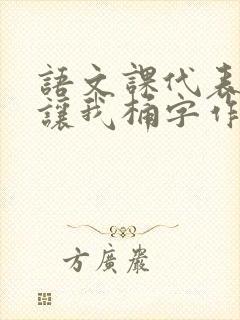 語文課代表
讓我桶字作
方廣嚴